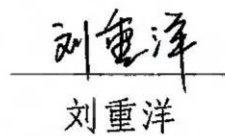 刘重洋
刘重洋